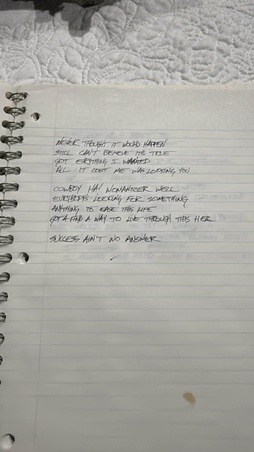 NEVER THOUGHT IT WOULD HAPPEN
STILL CAN'T BELIEVE ITS TRUE
GOT EVRYTHING I WANTED
ALL IT COST ME WAS LOOSING YOU
COWBOY HAT WOMANIZER WELL
EVERYBODYS LOOKING FOR SOMETHING
ANYTHING TO EASE THIS LIFE
GOT A FIND A WAY TO LIVE THROUGH THIS HER
SUCCESS AIN'T NO ANSWER